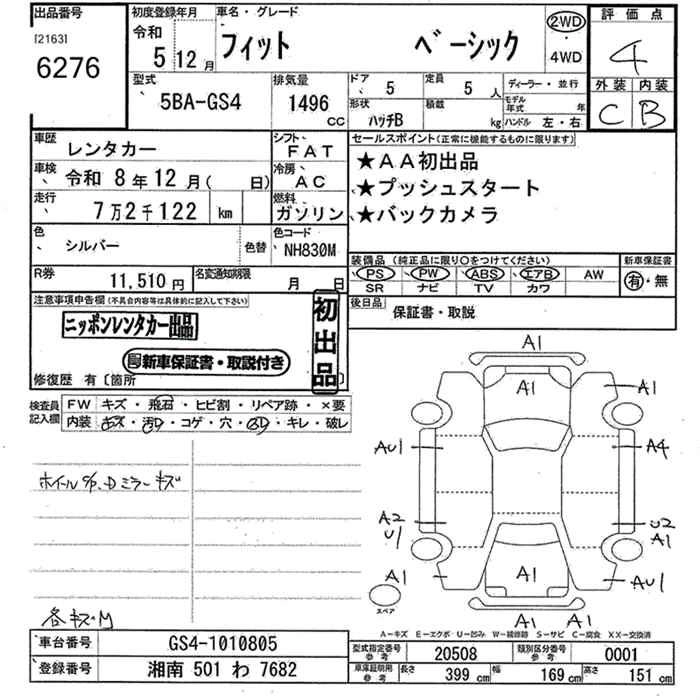 出品番号
[2163]
6276
初度登録年月
令和
5 12月
車名・グレード
フィット ベーシック
2WD
・
4WD
評価点
4
外装 内装
C B
型式
5BA-GS4
排気量
1496
cc
ドア
5
定員
5 人
ディーラー・並行
形状
ハッチB
積載
kg
モデル年式 年
ハンドル 左・右
車歴
レンタカー
シフト
FAT
車検
令和 8年12月( 日)
冷房
AC
走行
7万2千122 km
燃料
ガソリン
色
シルバー
色替
色コード
NH830M
R券
11,510円
名変通知期限
月 日
セールスポイント(正常に機能するものに限ります)
★AA初出品
★プッシュスタート
★バックカメラ
装備品(純正品に限り○をつけてください)
PS PW ABS エアB AW
SR ナビ TV カワ
新車保証書
有・無
後日品
保証書・取説
注意事項申告欄(不具合内容等は具体的に記入して下さい)
ニッポンレンタカー出品
新車保証書・取説付き
初出品
修復歴 有〔箇所 〕
検査員記入欄
FW キズ・飛石・ヒビ割・リペア跡・×要
内装 キズ・汚レ・コゲ・穴・スレ・キレ・破レ
ホイールキズ、Dミラーキズ
各キズ・M
A1
A1
A1
AU1
A4
A2
U1
U2
A1
A1
A1
AU1
スペア
A1 A1
A−キズ E−エクボ U−凹み W−補修跡 S−サビ C−腐食 XX−交換済
車台番号
GS4-1010805
登録番号
湘南 501 わ 7682
型式指定番号
参考
20508
類別区分番号
参考
0001
車庫証明用
参考
長さ
399 cm
幅
169 cm
高さ
151 cm